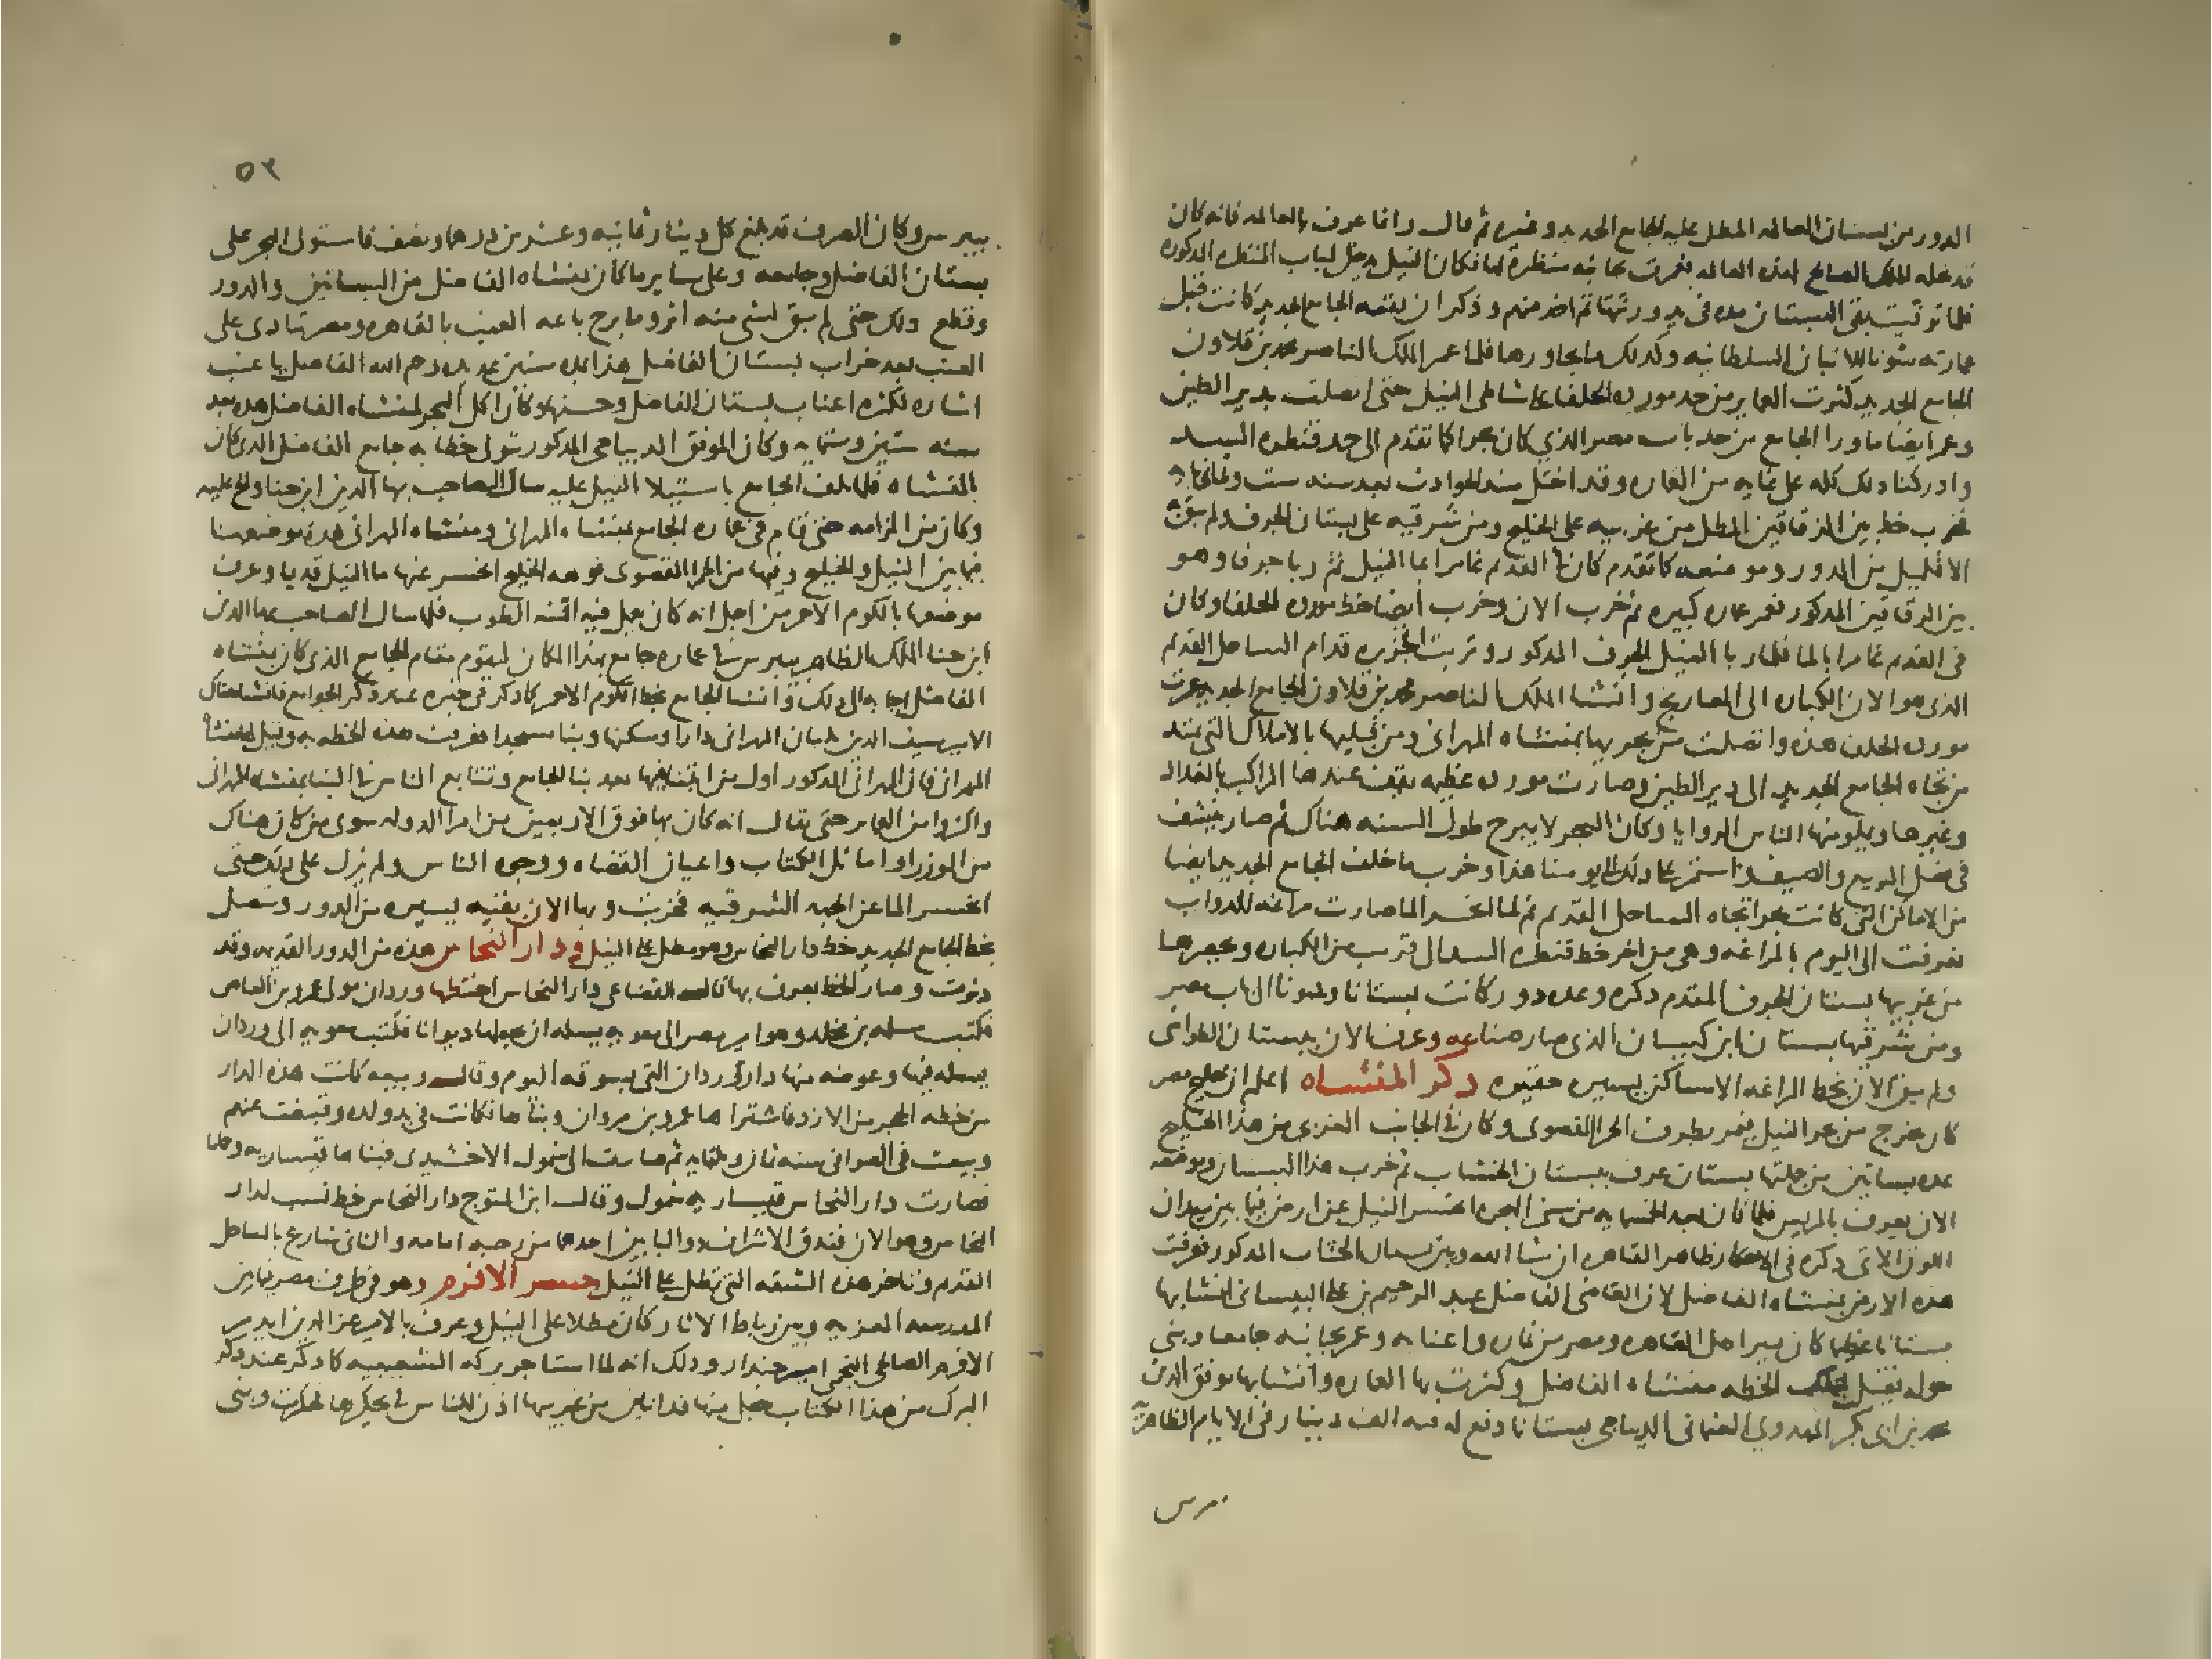 الدور من بستان العالمه المطل عليه الجامع الجديد وغيره ثم قال وانما عرف بالعالمه فانه كان
قد حله الملك الصالح لهذه العالمه فعمرت بجانبه منظرة لها فكان النيل يدخل لباب المنظره المذكوره
فلما توفيت بقي البستان مده في يد ورثتها ثم اخذ منهم وذكر ان بقعه الجامع الجديد كانت قبل
عمارته شونا للاتبان السلطانيه وكذلك ما يجاورها فلما عمر الملك الناصر محمد بن قلاون
الجامع الجديد كثرت العماير من حد مورده الحلفا على شاطي النيل حتى اتصلت بدير الطين
وعمر ايضا ما ورا الجامع من حد باب مصر الذي كان بحرا كما تقدم الى حد قنطره السد
وادركنا ذلك كله على غايه من العماره وقد اختل منذ الحوادث بعد سنه ست وثمانمايه
فخرب خط بين الزقاقين المطل من غربيه على الخليج ومن شرقيه على بستان الجرف ولم يبق به
الا قليل من الدور وموضعه كما تقدم كان في القديم غامرا بما النيل ثم ربا جرفا وهو
بين الزقاقين المذكور فعمر عماره كبيره ثم خرب الان وخرب ايضا خط مورده الحلفا وكان
في القديم غامرا بالما فلما ربا النيل الجرف المذكور وتربت الجزيره قدام الساحل القديم
الذي هو الان الكباره الى المعاريج وانشا الملك الناصر محمد بن قلاون الجامع الجديد عمرت
مورده الحلفا هذه واتصلت من بحريها بمنشاه المهراني ومن قبليها بالاملاك التي تمتد
من تجاه الجامع الجديد الى دير الطين وصارت مورده عظيمه تقف عندها المراكب بالغلال
وغيرها ويملو منها الناس الروايا وكان البحر لا يبرح طول السنه هناك ثم صار ينشف
في فصل الربيع والصيف واستمر على ذلك الى يومنا هذا وخرب ما خلف الجامع الجديد ايضا
من الاماكن التي كانت بحرا تجاه الساحل القديم ثم لما انحسر الما صارت مراغه للدواب
فعرفت الى اليوم بالمراغه وهي من اخر خط قنطره السد الى قريب من الكباره ويحصرها
من غربيها بستان الجرف المقدم ذكره وعده دور كانت بستانا وشونا الى باب مصر
ومن شرقيها بستان ابن كيسان الذي صار صناعه وعرف الان ببستان الطواشي
ولم يبق الان بخط المراغه الا مساكن يسيره حقيره ذكر المنشاه اعلم ان خليج مصر
كان يخرج من بحر النيل فيمر بطرف الحمرا القصوى وكان في الجانب الغربي من هذا الخليج
عده بساتين من جملتها بستان عرف ببستان الخشاب ثم خرب هذا البستان وموضعه
الان يعرف بالمريس فلما كان بعد الخمسمايه من سني الهجره انحسر النيل عن ارض فيما بين ميدان
اللوق الاتي ذكره في الاحكار ظاهر القاهره ان شا الله وبين بستان الخشاب المذكور فعرفت
هذه الارض بمنشاه الفاضل لان القاضي الفاضل عبد الرحيم بن علي البيساني انشا بها
بستانا عظيما كان يمير اهل القاهره ومصر من ثماره واعنابه وعمر بجانبه جامعا وبنى
حوله فقيل لتلك الخطه منشاه الفاضل وكثرت بها العماره وانشا بها موفق الدين
محمد بن ابي بكر المهدوي العثماني الديباجي بستانا دفع له فيه الف دينار في الايام الظاهريه
٥٢
بيبرس وكان الصرف قد بلغ كل دينار ثمانيه وعشرين درهما ونصف فاستولى البحر على
بستان الفاضل وجامعه وعلى ساير ما كان بمنشاه الفاضل من البساتين والدور
وقطع ذلك حتى لم يبق لشي منه اثر وما برح باعه العنب بالقاهره ومصر تنادي على
العنب بعد خراب بستان الفاضل هذا عده سنين عديده رحم الله الفاضل يا عنب
اشاره لكثره اعناب بستان الفاضل وحسنها وكان اكل البحر لمنشاه الفاضل هذه بعد
سنه ستين وستمايه وكان الموفق الديباجي المذكور يتولى خطابه جامع الفاضل الذي كان
بالمنشاه فلما تلف الجامع باستيلا النيل عليه سال الصاحب بها الدين ابن حنا والح عليه
وكان من الزامه حتى قام في عماره الجامع بمنشاه المهراني ومنشاه المهراني هذه موضعها
فيما بين النيل والخليج وفيها من الحمرا القصوى فوهه الخليج انحسر عنها ما النيل قديما وعرف
موضعها بالكوم الاحمر من اجل انه كان يعمل فيه اقمنه الطوب فلما سال الصاحب بها الدين
ابن حنا الملك الظاهر بيبرس في عماره جامع بهذا المكان ليقوم مقام الجامع الذي كان بمنشاه
الفاضل اجابه الى ذلك وانشا الجامع بخط الكوم الاحمر كما ذكر في خبره عند ذكر الجوامع فانشا هناك
الامير سيف الدين بلبان المهراني دارا وسكنها وبنا مسجدا فعرفت هذه الخطه به وقيل لها منشاه
المهراني فان المهراني المذكور اول من ابتنا فيها بعد بنا الجامع وتتابع الناس في البنا بمنشاه المهراني
واكثروا من العماير حتى يقال انه كان بها فوق الاربعين من امرا الدوله سوى من كان هناك
من الوزرا واماثل الكتاب واعيان القضاه ووجوه الناس ولم يزل على ذلك حتى
انحسر الما عن الجهه الشرقيه فخربت وبها الان بقيه يسيره من الدور ويتصل
بخط الجامع الجديد خط دار النحاس وهو مطل على النيل ودار النحاس هذه من الدور القديمه وقد
دثرت وصار الخط يعرف بها قال القضاعي دار النحاس اختطها وردان مولى عمرو بن العاص
فكتب مسلمه بن مخلد وهو امير مصر الى معويه يسله ان يجعلها ديوانا فكتب معويه الى وردان
يسله فيها وعوضه منها دار وردان التي بسوقه اليوم وقال ربيعه كانت هذه الدار
من خطه الحجر من الازد فاشتراها عمر بن مروان وبناها فكانت في يد ولده وقبضت عنهم
وبيعت في الصوافي سنه ثمان وثلثمايه ثم صارت الى شمول الاخشيدي فبناها قيساريه وحماما
فصارت دار النحاس قيساريه شمول وقال ابن المتوج دار النحاس خط نسب لدار
النحاس وهو الان فندق الاشراف ذو البابين احدهما من رحبه امامه والثاني شارع بالساحل
القديم وفي اخر هذه الشقه التي تطل على النيل جسر الافرم وهو في طرف مصر فيما بين
المدرسه المعزيه وبين رباط الاثار كان مطلا على النيل وعرف بالامير عز الدين ايدمر
الافرم الصالحي النجمي امير جندار وذلك انه لما استاجر بركه الشعيبيه كما ذكر عند ذكر
البرك من هذا الكتاب جعل منها فدانين من غربيها اذن للناس في تحكيرها فحكرت وبنى